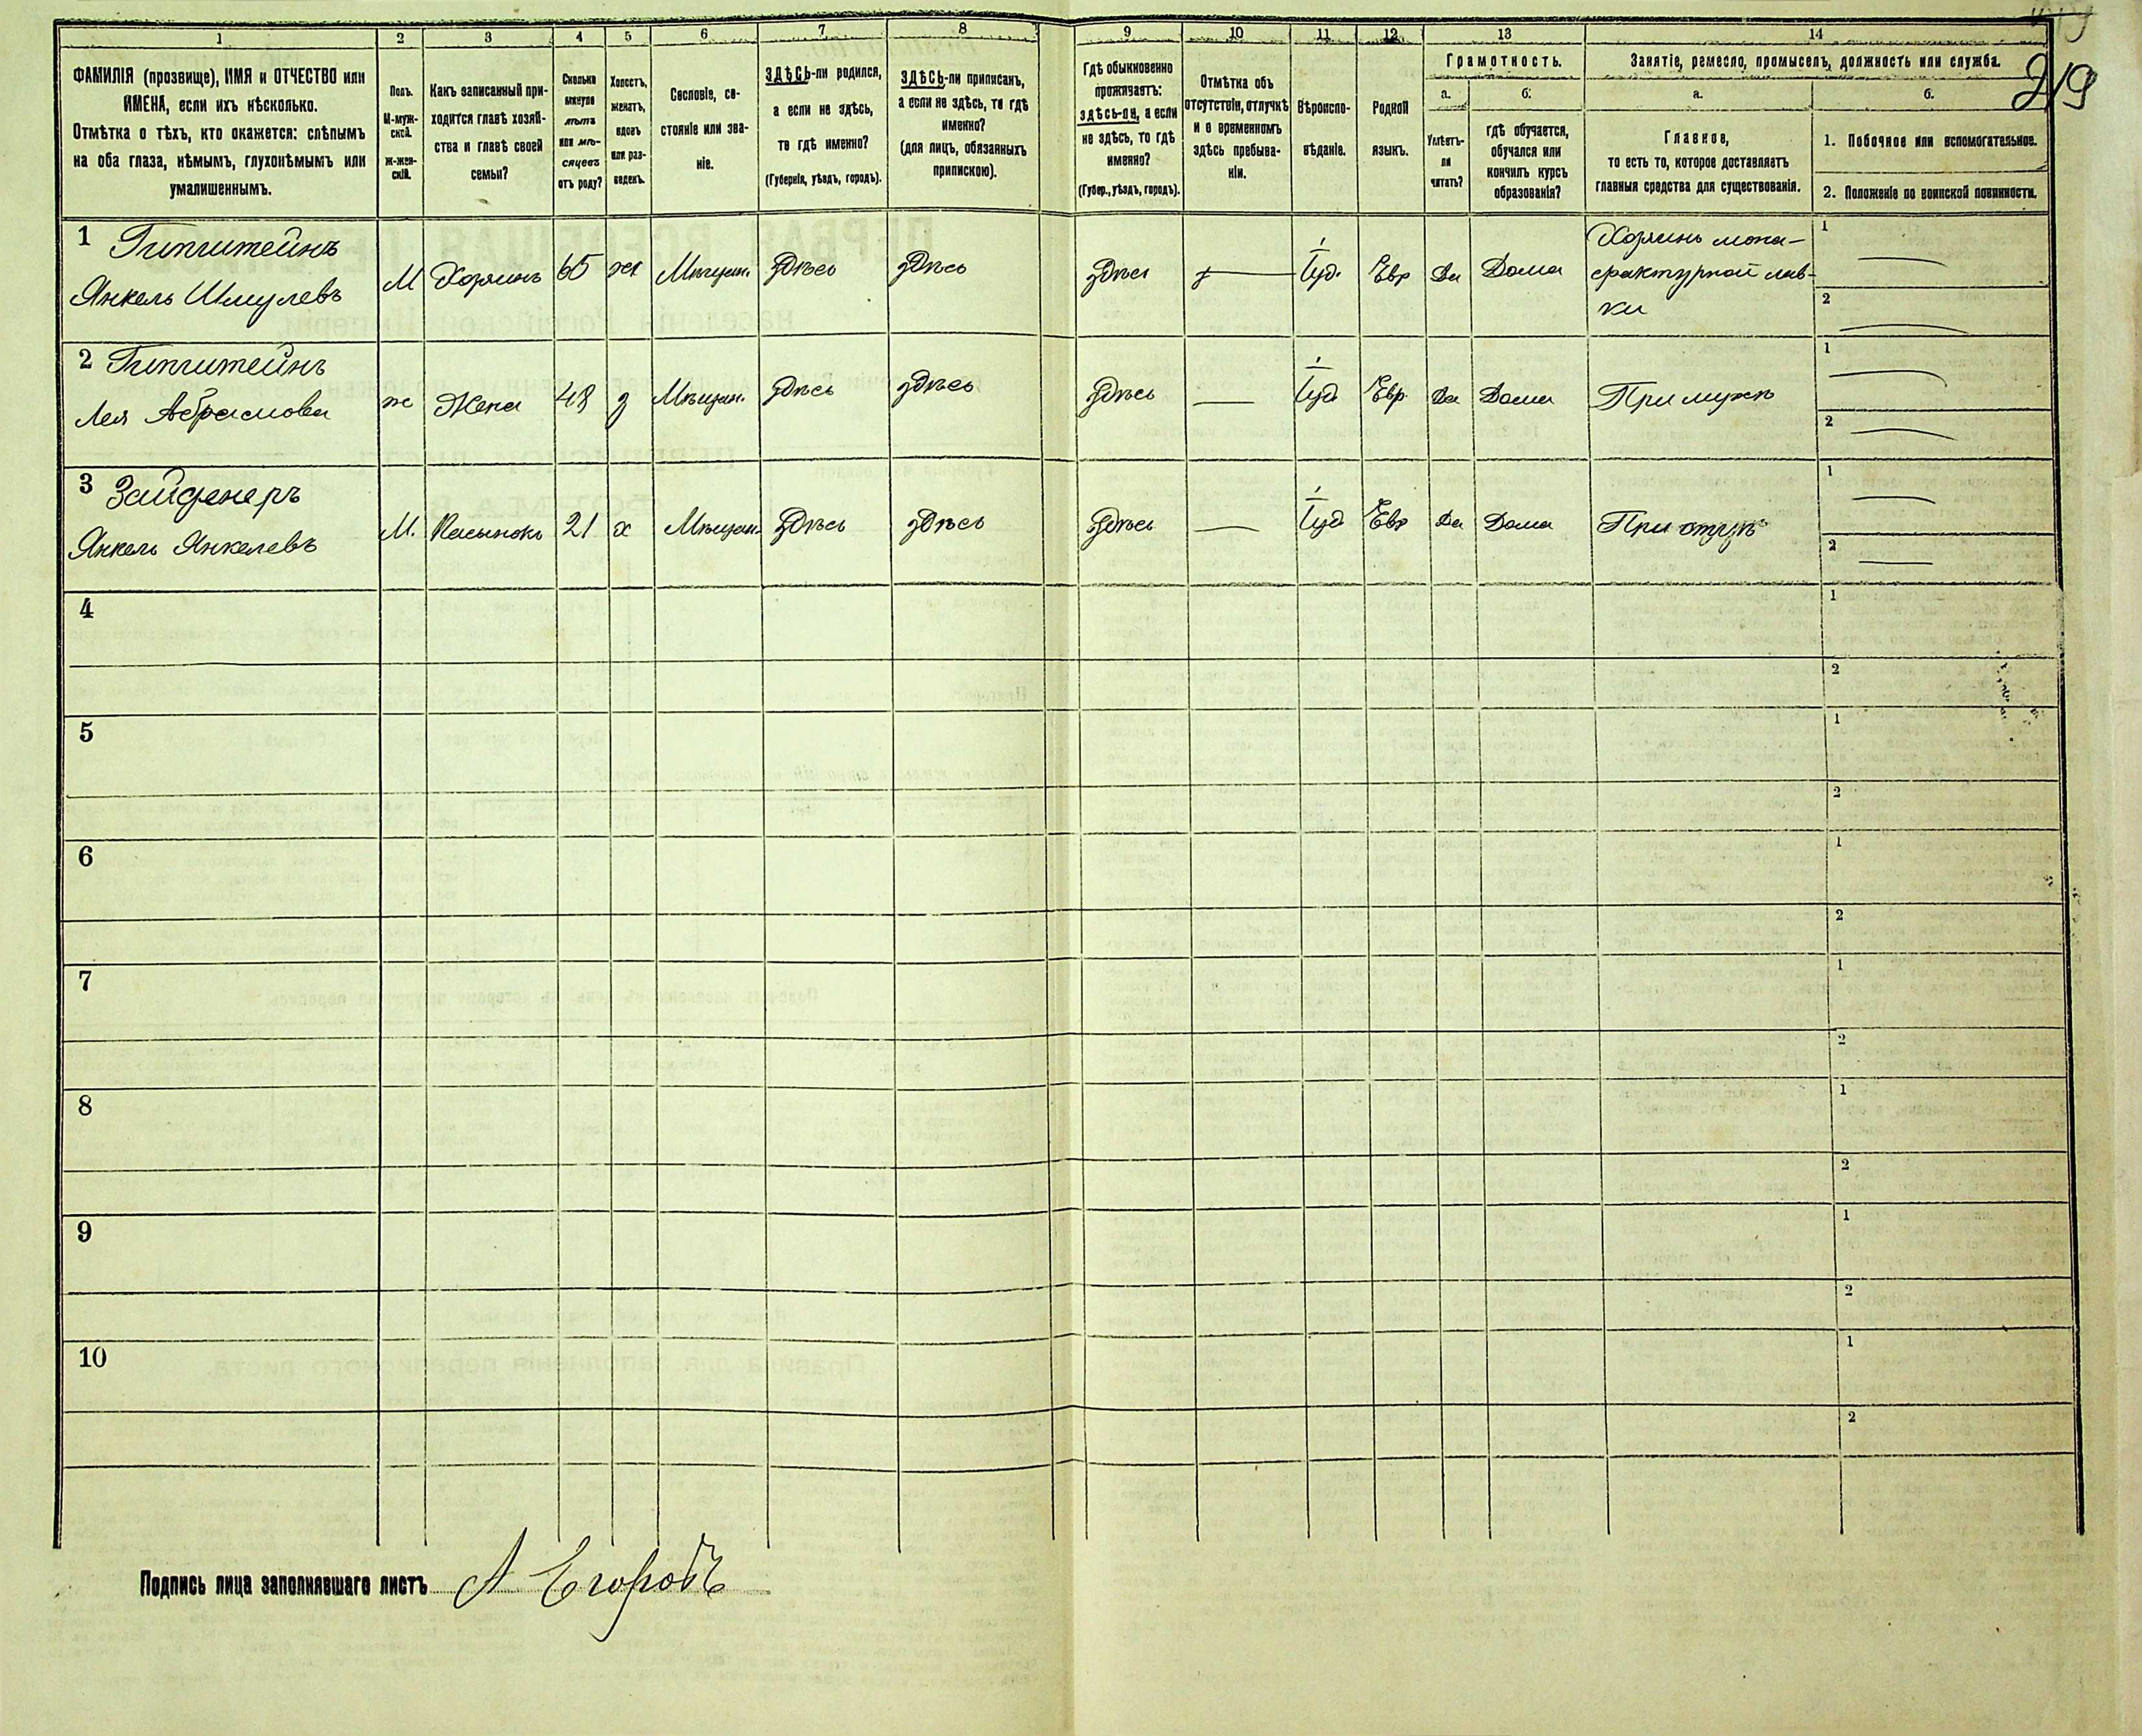 219
1 2 3 4 5 6 7 8 9 10 11 12 13 14
ФАМИЛІЯ (прозвище), ИМЯ и ОТЧЕСТВО или
ИМЕНА, если ихъ нѣсколько.
Отмѣтка о тѣхъ, кто окажется: слѣпымъ
на оба глаза, нѣмымъ, глухонѣмымъ или
умалишеннымъ.
Полъ.
М-муж-
ской.
Ж-жен-
скій.
Какъ записанный при-
ходится главѣ хозяй-
ства и главѣ своей
семьи?
Сколько
минуло
лѣтъ
или мѣ-
сяцевъ
отъ роду?
Холостъ,
женатъ,
вдовъ
или раз-
веденъ.
Сословіе, со-
стояніе или зва-
ніе.
ЗДѢСЬ-ли родился,
а если не здѣсь,
то гдѣ именно?
(Губернія, уѣздъ, городъ).
ЗДѢСЬ-ли приписанъ,
а если не здѣсь, то гдѣ
именно?
(для лицъ, обязанныхъ
припискою).
Гдѣ обыкновенно
проживаетъ:
здѣсь-ли, а если
не здѣсь, то гдѣ
именно?
(Губер., уѣздъ, городъ).
Отмѣтка объ
отсутствіи, отлучкѣ
и о временномъ
здѣсь пребыва-
ніи.
Вѣроиспо-
вѣданіе.
Родной
языкъ.
Грамотность.
а.
Умѣетъ-
ли
читать?
б.
гдѣ обучается,
обучался или
кончилъ курсъ
образованія?
Занятіе, ремесло, промыселъ, должность или служба.
а.
Главное,
то есть то, которое доставляетъ
главныя средства для существованія.
б.
1. Побочное или вспомогательное.
2. Положеніе по воинской повинности.
1
Янкель Шмулевъ
М Хозяинъ 65 жт Мѣщан. здѣсь здѣсь здѣсь Іуд. Евр Да Дома
Хозяинъ мону-
фактурной лав-
ки
1
2
2
Лея Абрамова
ж Жена 48 з Мѣщан. здѣсь здѣсь здѣсь Іуд Евр. Да Дома При мужѣ
1
2
3 Зайденеръ
Янкель Янкелевъ
М. Пасынокъ 21 х Мѣщан. здѣсь здѣсь здѣсь Іуд Евр Да Дома
1
2
4 1
2
5 1
2
6 1
2
7 1
2
8 1
2
9 1
2
10 1
2
Подпись лица заполнявшаго листъ А Егоровъ